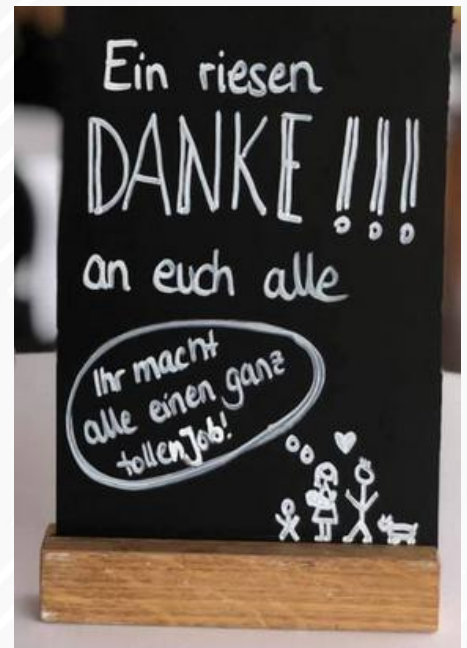 Ein riesen
DANKE!!!
an euch alle
Ihr macht
alle einen ganz
tollen Job!